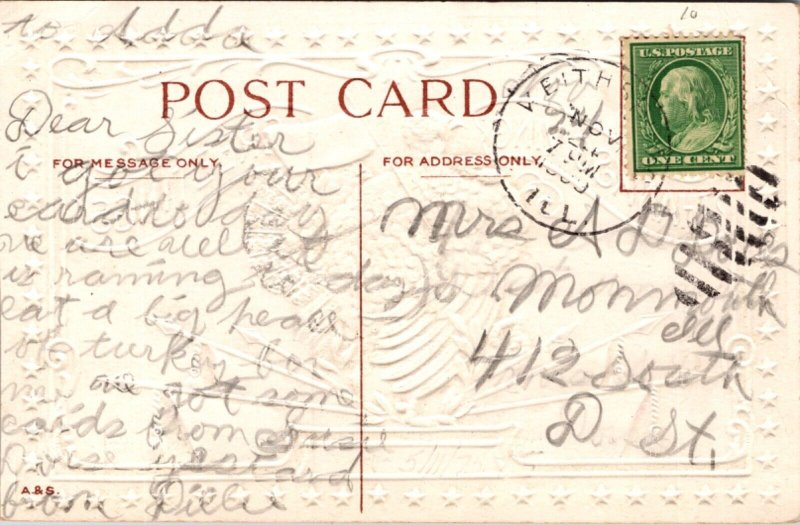 to Adda
POST CARD
Dear Sister
FOR MESSAGE ONLY
i got your
card to day
we are well it
is raining to day
eat a big peace
of turkey for
me we got some
cards from Susie
card
from
A.&S.
FOR ADDRESS ONLY
Mrs A D
Monmouth
Ill
412 South
D St,
KEITHS
NOV
7 AM
ILL.
U.S. POSTAGE
ONE CENT
10